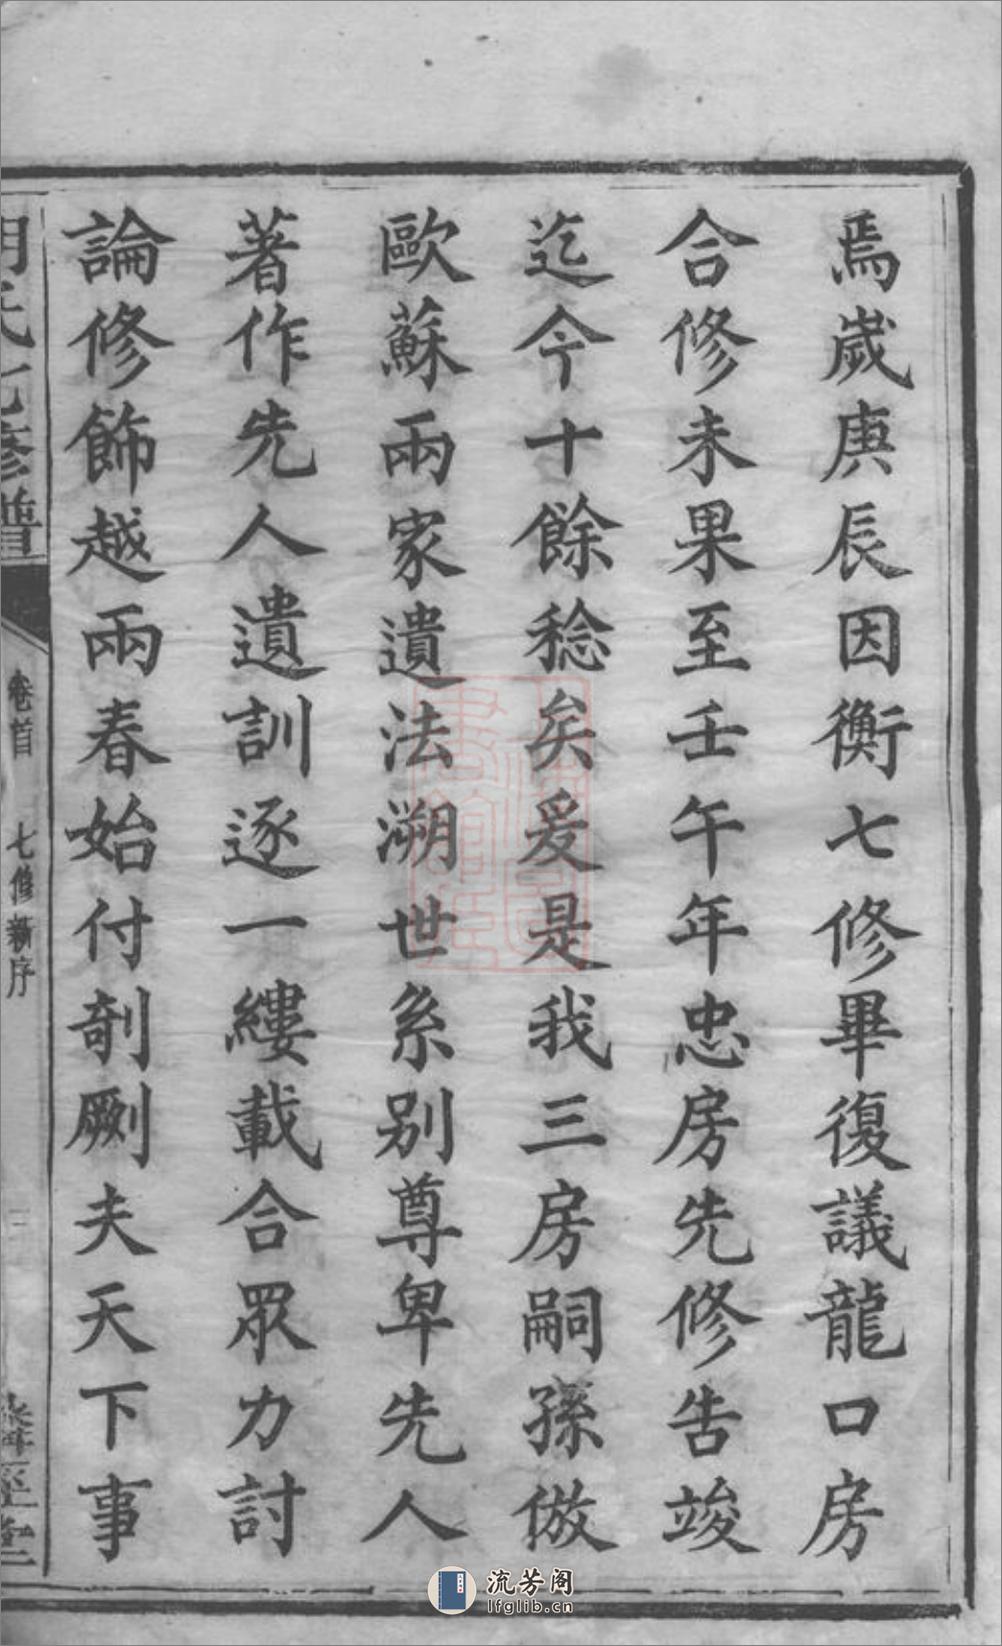 焉嵗庚辰因衡七修畢復議龍口房
合修未果至壬午年忠房先修告竣
迄今十餘稔矣爰是我三房嗣孫倣
歐蘇兩家遺法溯世系别尊卑先人
著作先人遺訓逐一縷載合眾力討
論修飾越兩春始付剞劂夫天下事
氏七修譜
卷首
七修新序
三
堂
流芳阁
lfglib.cn